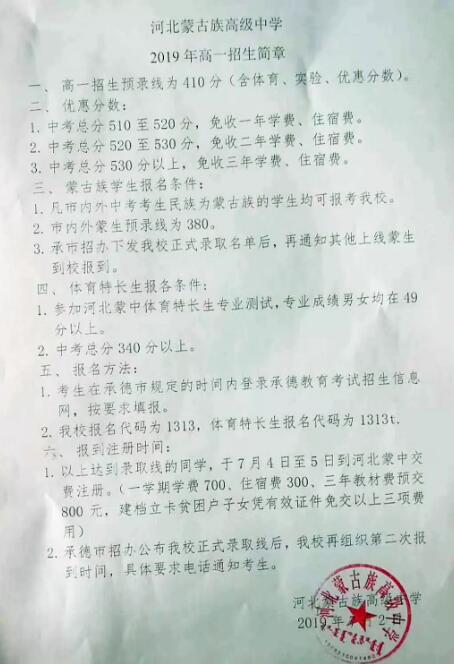 河北蒙古族高级中学
2019年高一招生简章
一、高一招生预录线为410分（含体育、实验、优惠分数）。
二、优惠分数：
1.中考总分510至520分，免收一年学费、住宿费。
2.中考总分520至530分，免收二年学费、住宿费。
3.中考总分530分以上，免收三年学费、住宿费。
三、蒙古族学生报名条件：
1.凡市内外中考考生民族为蒙古族的学生均可报考我校。
2.市内外蒙生预录线为380。
3.承市招办下发我校正式录取名单后，再通知其他上线蒙生
到校报到。
四、体育特长生报名条件：
1.参加河北蒙中体育特长生专业测试，专业成绩男女均在49
分以上。
2.中考总分340分以上。
五、报名方法：
1.考生在承德市规定的时间内登录承德教育考试招生信息
网，按要求填报。
2.我校报名代码为1313，体育特长生报名代码为1313t.
六、报到注册时间：
1.以上达到录取线的同学，于7月4日至5日到河北蒙中交
费注册。（一学期学费700、住宿费300、三年教材费预交
800元，建档立卡贫困户子女凭有效证件免交以上三项费
用）
2.承德市招办公布我校正式录取线后，我校再组织第二次报
到时间，具体要求电话通知考生。
河北蒙古族高级中学
2019年
河北蒙古族高级中学